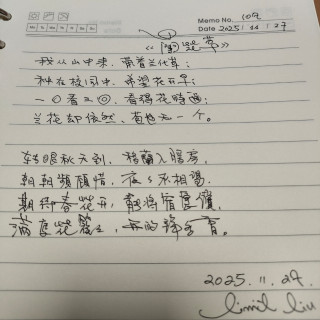 Memo No. 109
Date 2025 / 11 / 27
《蘭花草》
我从山中来，带着兰花草；
种在校园中，希望花开早；
一日看三回，看得花时过；
兰花却依然，苞也无一个。
转眼秋天到，移蘭入暖房，
朝朝頻顧惜，夜夜不相忘。
期盼春花开，能将宿愿償，
滿庭花簇簇，
2025. 11. 27.